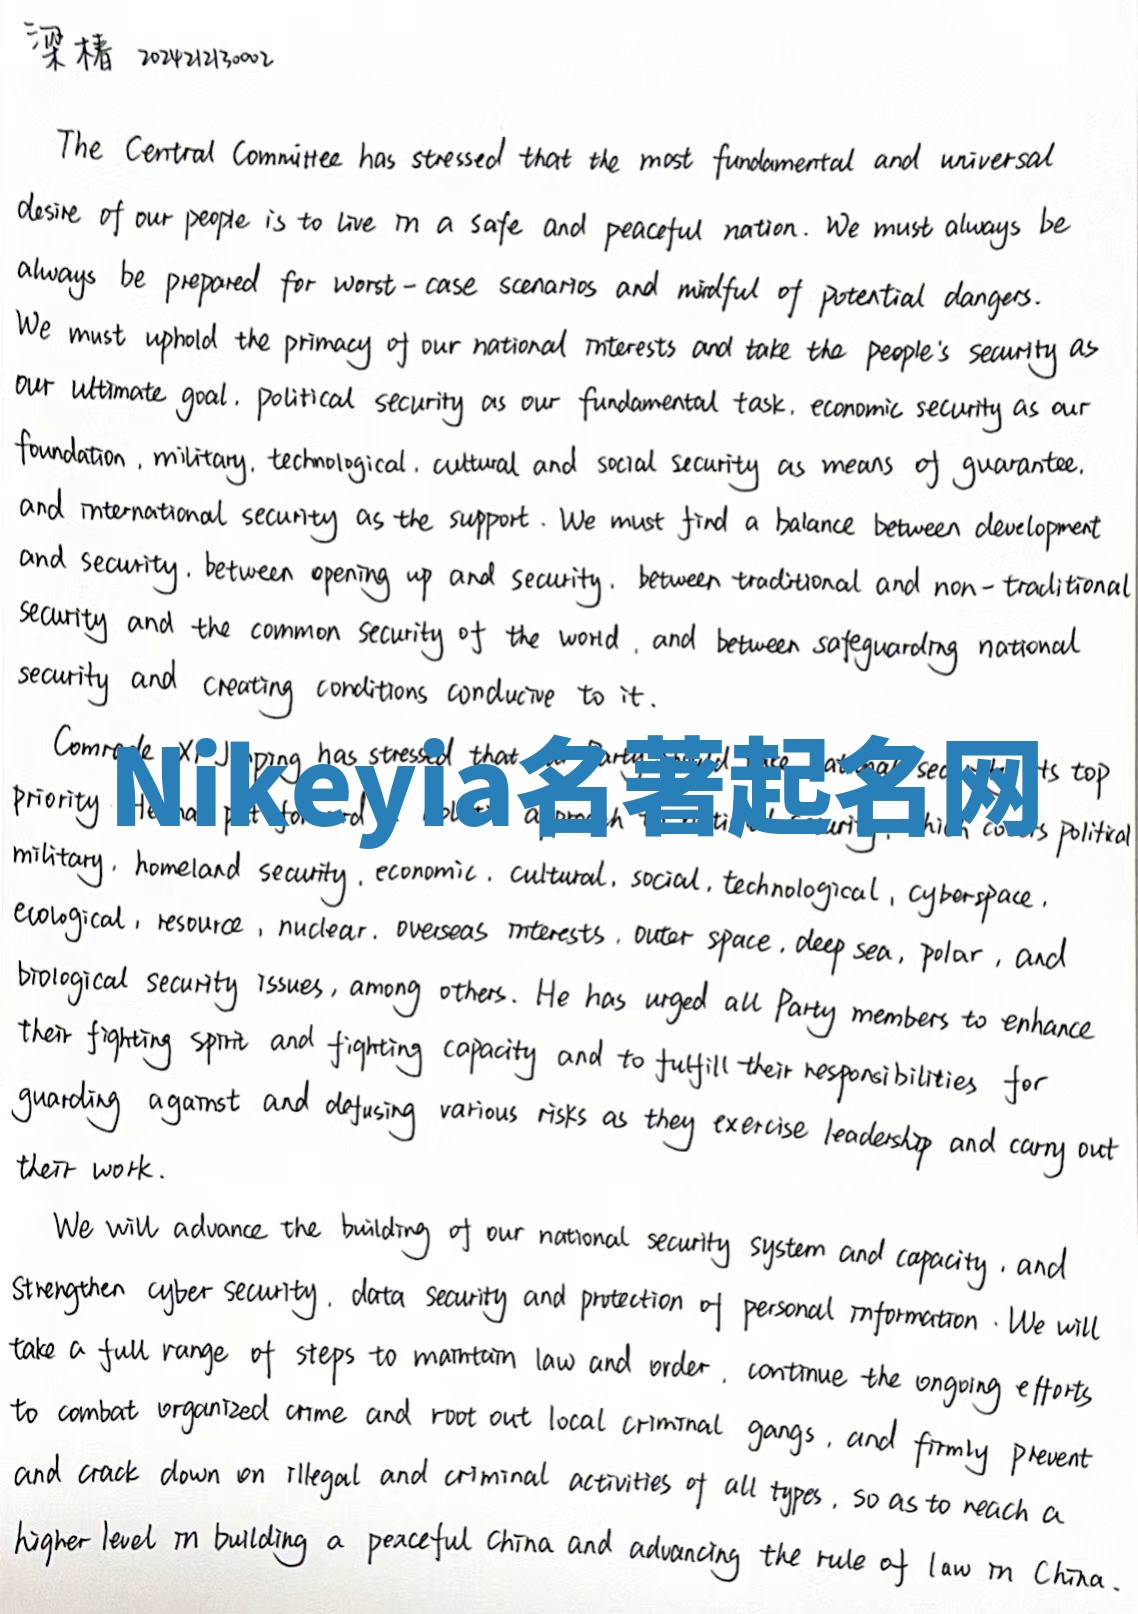 梁椿 2024212130002
The Central Committee has stressed that the most fundamental and universal
desire of our people is to live in a safe and peaceful nation. We must always be
always be prepared for worst-case scenarios and mindful of potential dangers.
We must uphold the primacy of our national interests and take the people's security as
our ultimate goal, political security as our fundamental task, economic security as our
foundation, military, technological, cultural and social security as means of guarantee,
and international security as the support. We must find a balance between development
and security, between opening up and security, between traditional and non-traditional
security and the common security of the world, and between safeguarding national
security and creating conditions conducive to it.
Comrade Xi Jinping has stressed that Party national security its top
Nikeyia名著起名网
priority. He has put forward approach to national security, which covers political
military, homeland security, economic, cultural, social, technological, cyberspace,
ecological, resource, nuclear, overseas interests, outer space, deep sea, polar, and
biological security issues, among others. He has urged all Party members to enhance
their fighting spirit and fighting capacity and to fulfill their responsibilities for
guarding against and defusing various risks as they exercise leadership and carry out
their work.
We will advance the building of our national security system and capacity, and
strengthen cyber security, data security and protection of personal information. We will
take a full range of steps to maintain law and order, continue the ongoing efforts
to combat organized crime and root out local criminal gangs, and firmly prevent
and crack down on illegal and criminal activities of all types, so as to reach a
higher level in building a peaceful China and advancing the rule of law in China.